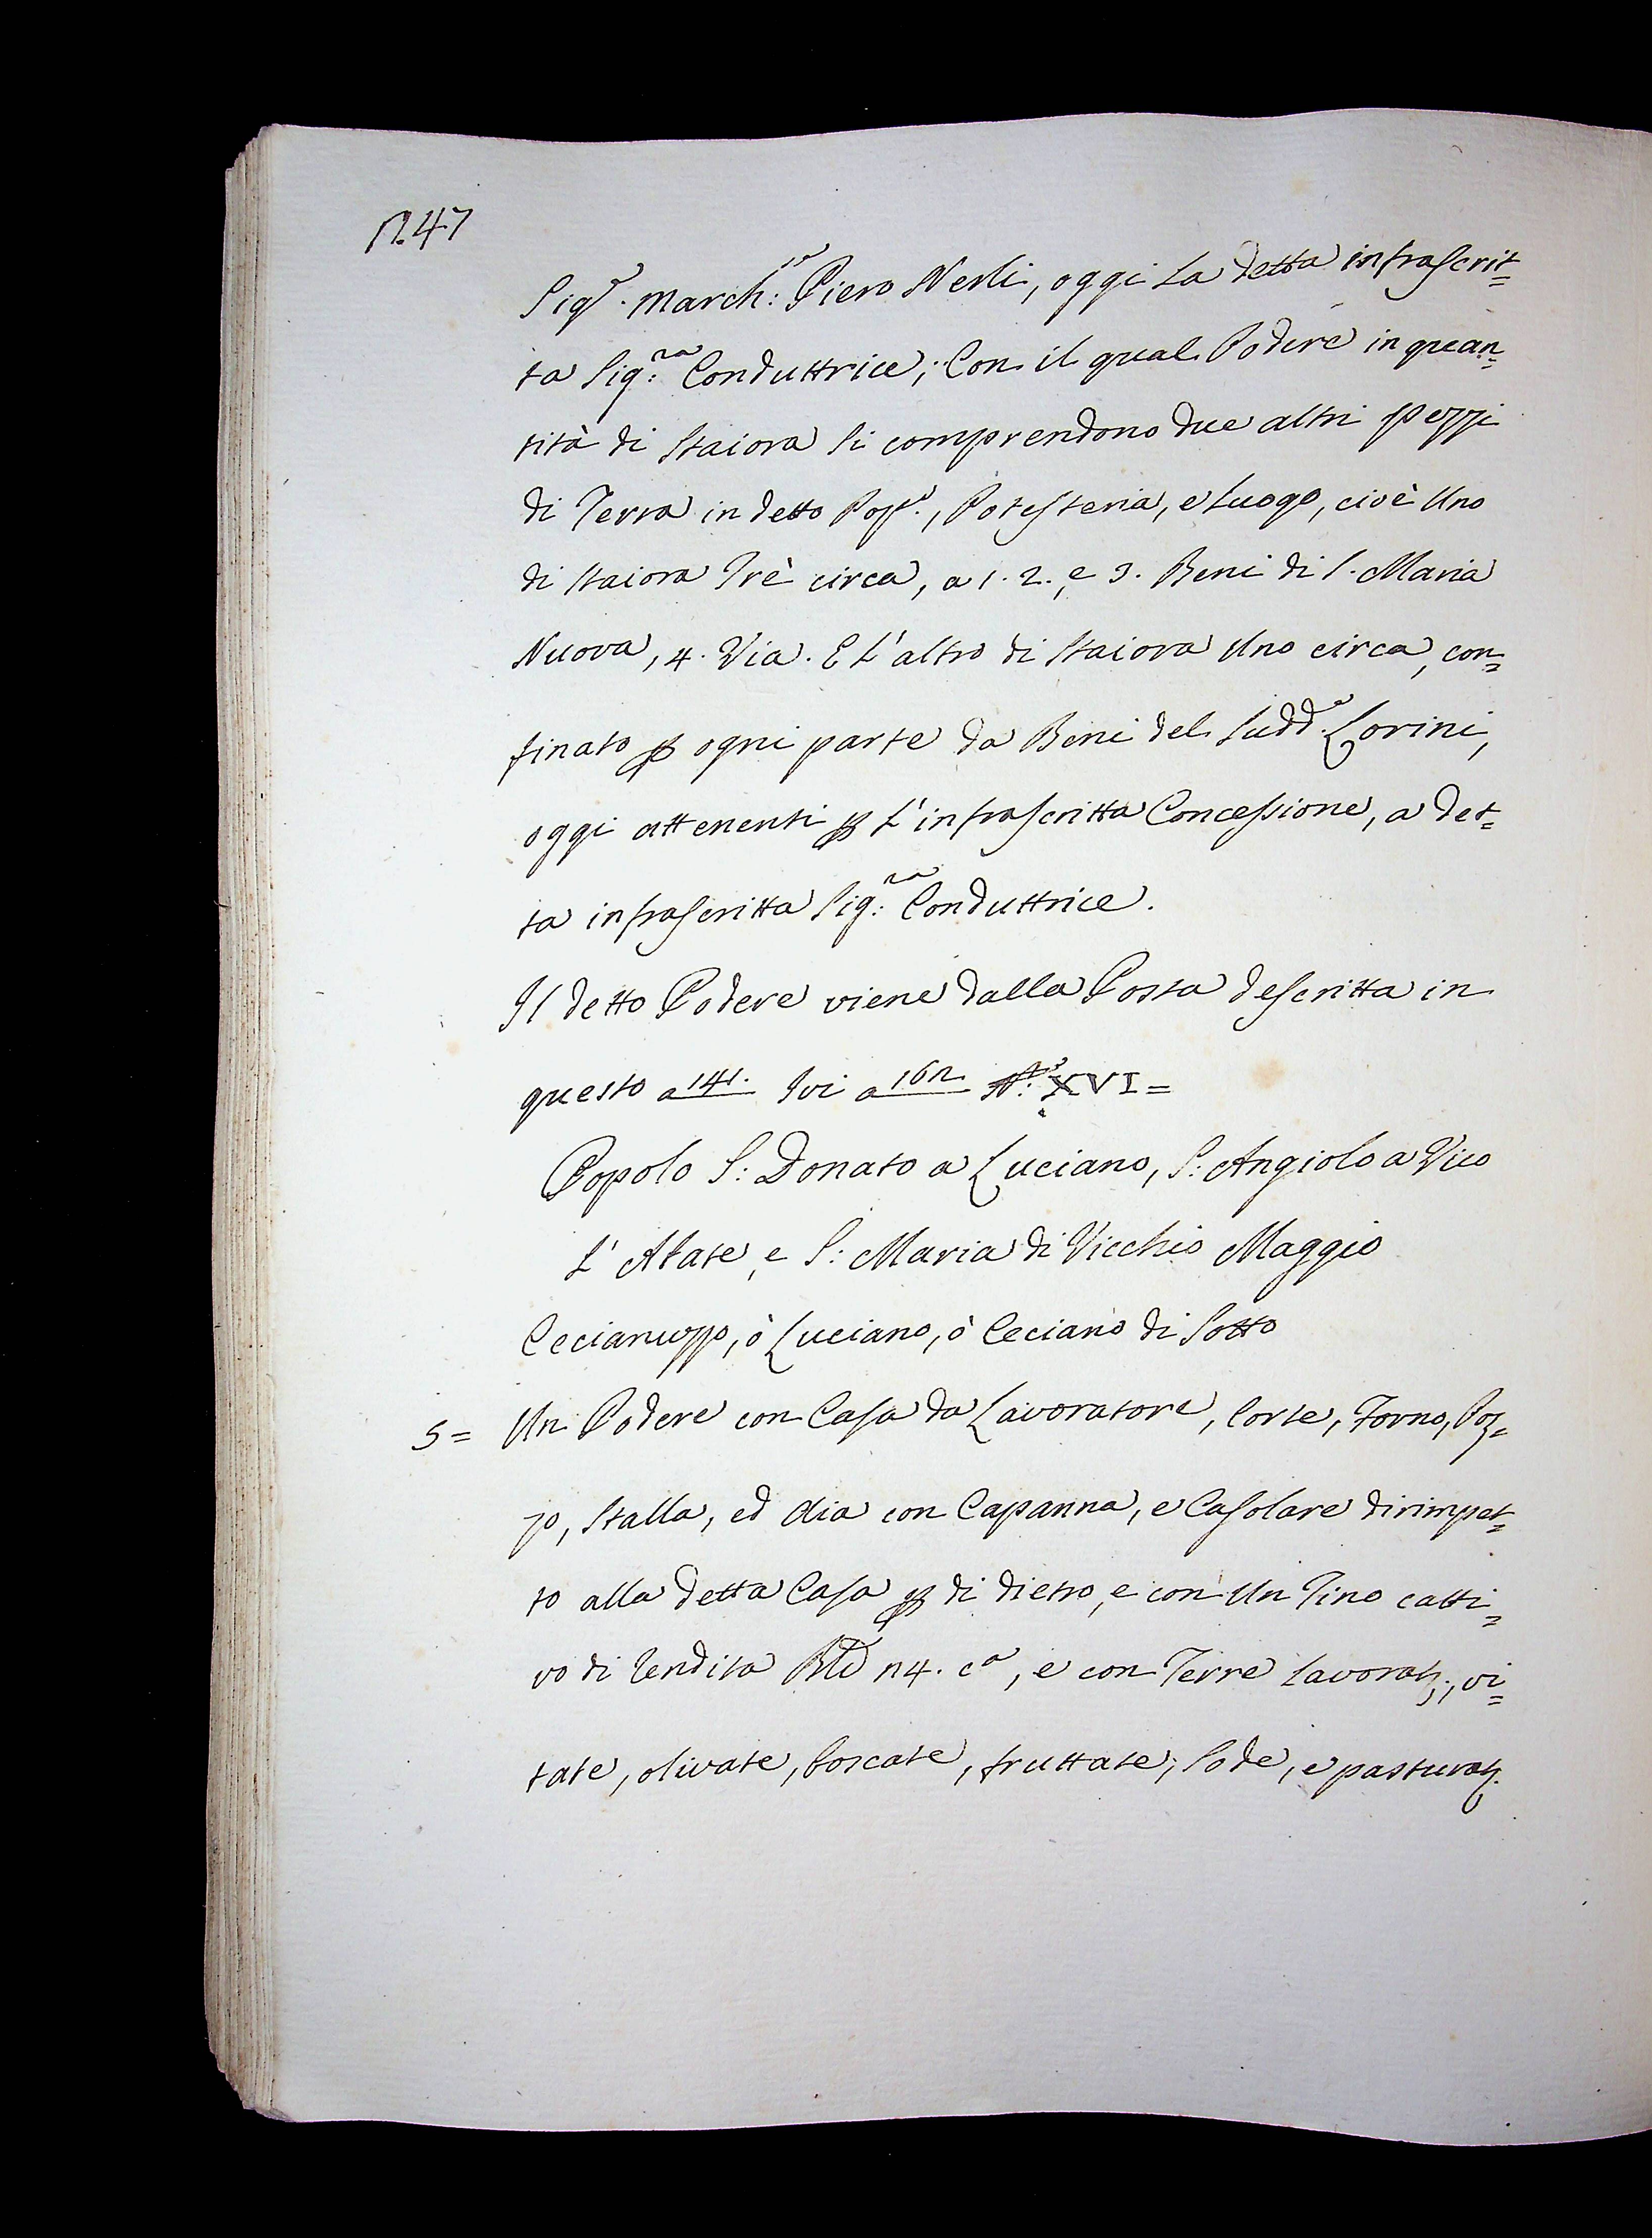 n. 47
Sig.r March:se Piero Nerli, oggi la detta infrascrit=
ta Sig:ra Conduttrice; Con il qual Podere in quan=
tità di Staiora si comprendono due altri Pezzi
di Terra in detto Pop.o, Potesteria, e Luogo, cioè Uno
di Staiora Trè circa, a 1. 2., e 3. Beni di S. Maria
Nuova, 4. Via. E l'altro di Staiora Uno circa, con=
finato p ogni parte da Beni del Sudd.o Lorini,
oggi attenenti p l'infrascritta Concessione, a det=
ta infrascritta Sig:ra Conduttrice.
Il detto Podere viene dalla Posta descritta in
questo a 141. Ivi a 162 N.o XVI=
Popolo S: Donato a Luciano, S: Angiolo a Vico
L'Abate, e S: Maria di Vicchio Maggio
Cecianuzzo, ò Luciano, ò Ceciano di Sotto
5= Un Podere con Casa da Lavoratore, Corte, Forno, Poz=
zo, Stalla, ed Aia con Capanna, e Casolare dirimpet=
to alla detta Casa p di dietro, e con Un Tino catti=
vo di tendita Bli n 4. ca, e con Terre lavorat;, vi=
tate, olivate, boscate, fruttate, sode, e pasturat.